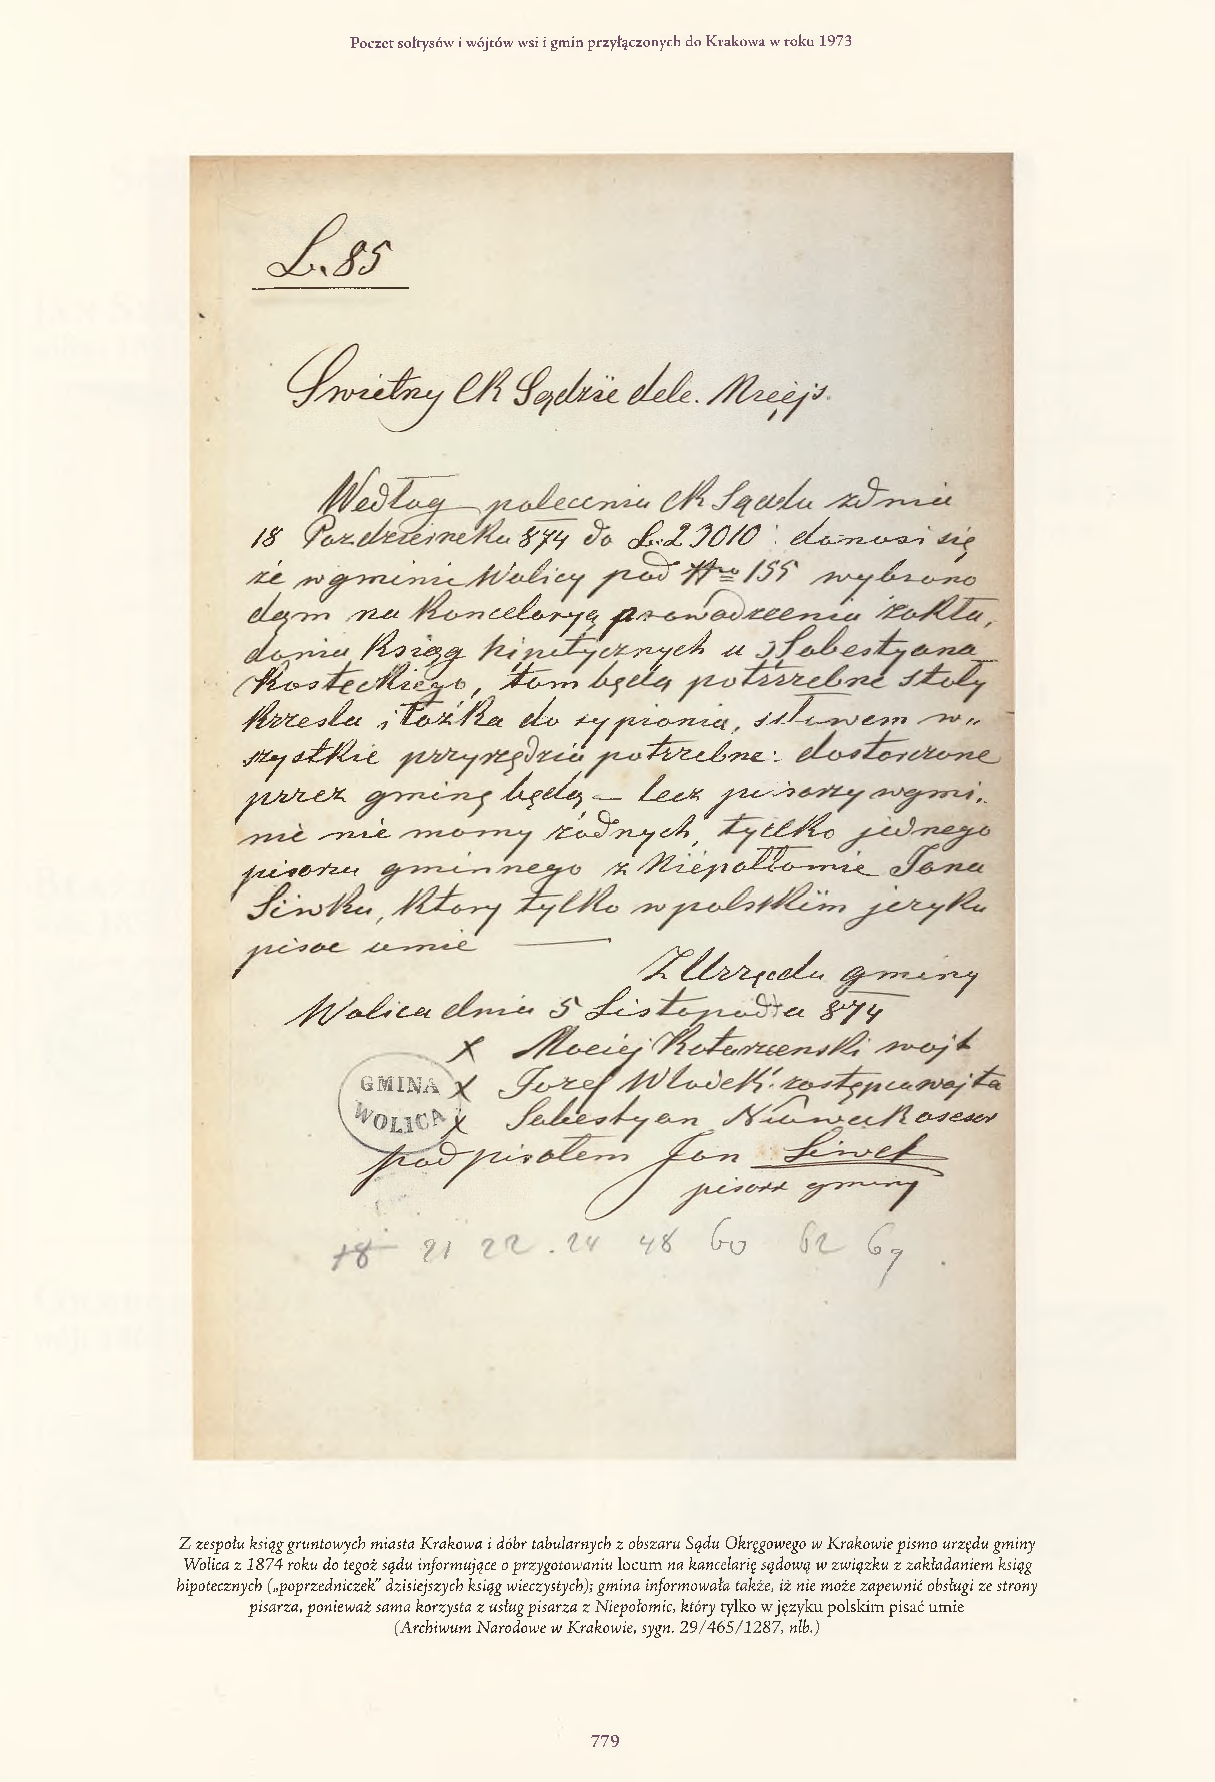 Poczet sołtysów i wójtów wsi i gmin przyłączonych do Krakowa w roku 1973
L. 85
Swietny CK Sądzie dele. Miejs.
Według polecenia CK Sądu z dnia
18 Pazdzierneka 874 do L. 23010 : donosi się
że w gminie Wolicy pod Nro 155 wybrano
dom na Koncelaryą prowadzenia zakła,
dania Ksiąg hipotycznych u Sabestyana
Kosteckiego, tam będą potrzrzebne stoły
Krzesła i łożka do sypiania, słowem w„
szystkie przyrzędzia potrzebne : dostarczone
przez gminę będą — lecz pisarzy w gmi„
nie nie momy żadnych, tylko jednego
pisarza gminnego z Niepołłomic Jana
Siwka, Ktory tylko w polskim jezyku
pisac umie —
Z Urzędu gminy
Wolica dnia 5 Listopadta 874
x Maciej Kotarzenski wojt
GMINA x Jozef Włodek zostępca wojta
WOLICA x Sabestyan Nowak asesor
podpisałem Jan Siwek
pisarz gminy
18 21 22 . 24 48 60 62 69
Z zespołu ksiąg gruntowych miasta Krakowa i dóbr tabularnych z obszaru Sądu Okręgowego w Krakowie pismo urzędu gminy
Wolica z 1874 roku do tegoż sądu informujące o przygotowaniu locum na kancelarię sądową w związku z zakładaniem ksiąg
hipotecznych („poprzedniczek” dzisiejszych ksiąg wieczystych); gmina informowała także, iż nie może zapewnić obsługi ze strony
pisarza, ponieważ sama korzysta z usług pisarza z Niepołomic, który tylko w języku polskim pisać umie
(Archiwum Narodowe w Krakowie, sygn. 29/465/1287, nlb.)
779